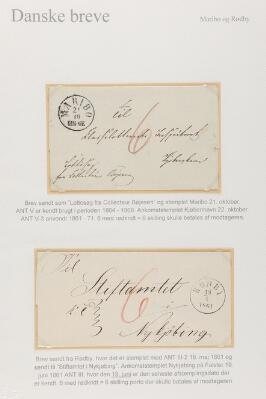 Danske breve
Maribo og Rødby
MARIBO
21
10
til
6
Brev sendt som "Lottosag fra Collecteur Bøjesen" og stemplet Maribo 21. oktober.
ANT V er kendt brugt i perioden 1864 - 1868. Ankomststemplet Kjøbenhavn 22. oktober.
ANT V-3 anvendt 1861 - 71. 6 med rødkridt = 6 skilling skulle betales af modtageren.
Til
Stiftamtet
i
Nykjöbing
6
RØDBY
19
1861
Brev sendt fra Rødby, hvor det er stemplet med ANT III-2 19. maj 1861 og
sendt til "Stiftamtet i Nykjøbing". Ankomststemplet Nykjøbing på Falster 19.
juni 1861 ANT III, hvor den 19. juni er den seneste afstemplingsdato der
er kendt. 6 med rødkridt = 6 skilling porto der skulle betales af modtageren.